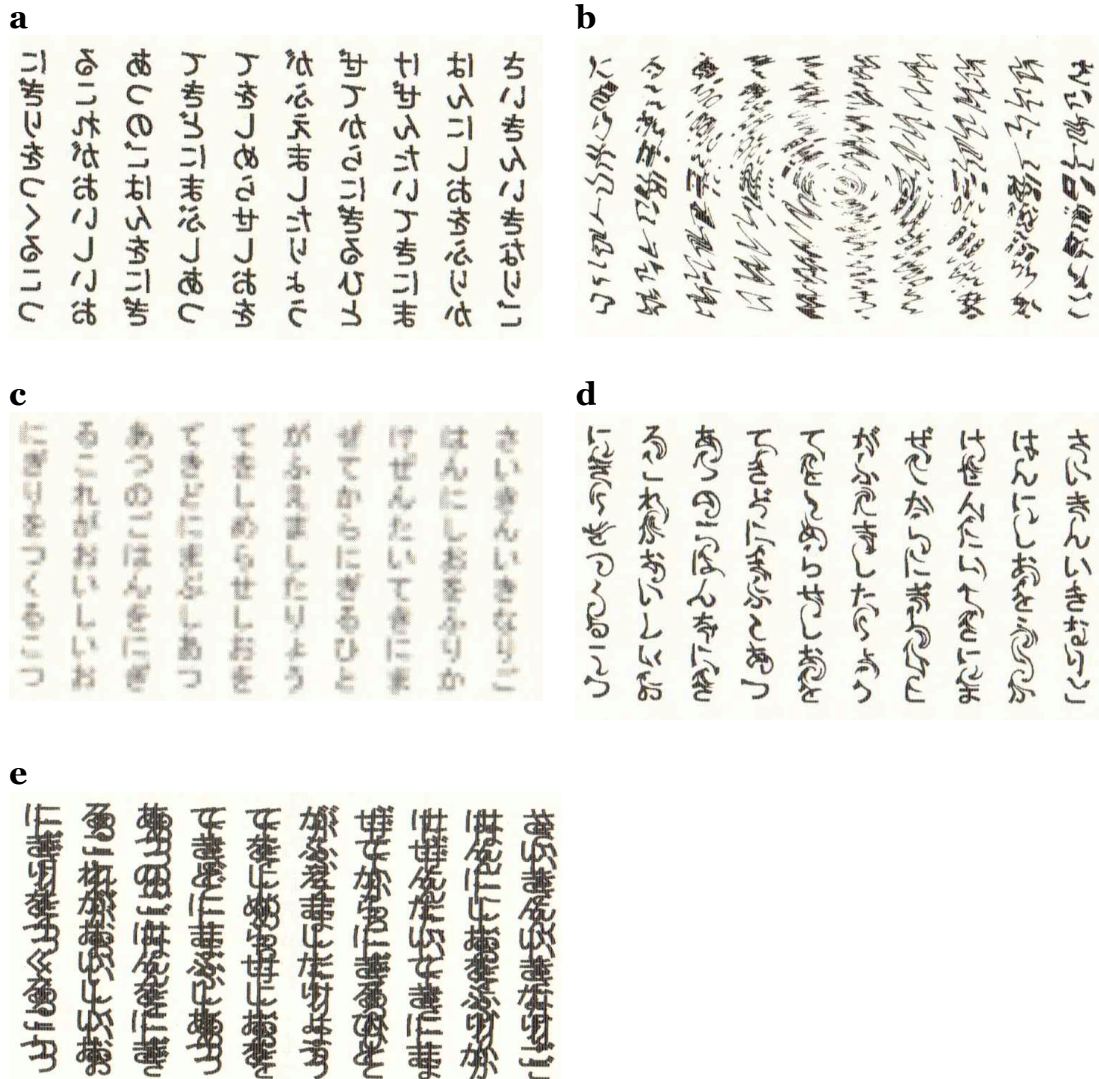 a
さいきんいきなりご
はんにしおをふりか
けぜんたいてきにま
ぜてからにぎるひと
がふえましたりょう
てをしめらせしおを
てきどにまぶしあつ
あつのごはんをにぎ
るこれがおいしいお
にぎりをつくるこつ
b
c
さいきんいきなりご
はんにしおをふりか
けぜんたいてきにま
ぜてからにぎるひと
がふえましたりょう
てをしめらせしおを
てきどにまぶしあつ
あつのごはんをにぎ
るこれがおいしいお
にぎりをつくるこつ
d
さいきんいきなりご
はんにしおをふりか
けぜんたいてきにま
ぜてからにぎるひと
がふえましたりょう
てをしめらせしおを
てきどにまぶしあつ
あつのごはんをにぎ
るこれがおいしいお
にぎりをつくるこつ
e
さいきんいきなりご
はんにしおをふりか
けぜんたいてきにま
ぜてからにぎるひと
がふえましたりょう
てをしめらせしおを
てきどにまぶしあつ
あつのごはんをにぎ
るこれがおいしいお
にぎりをつくるこつ